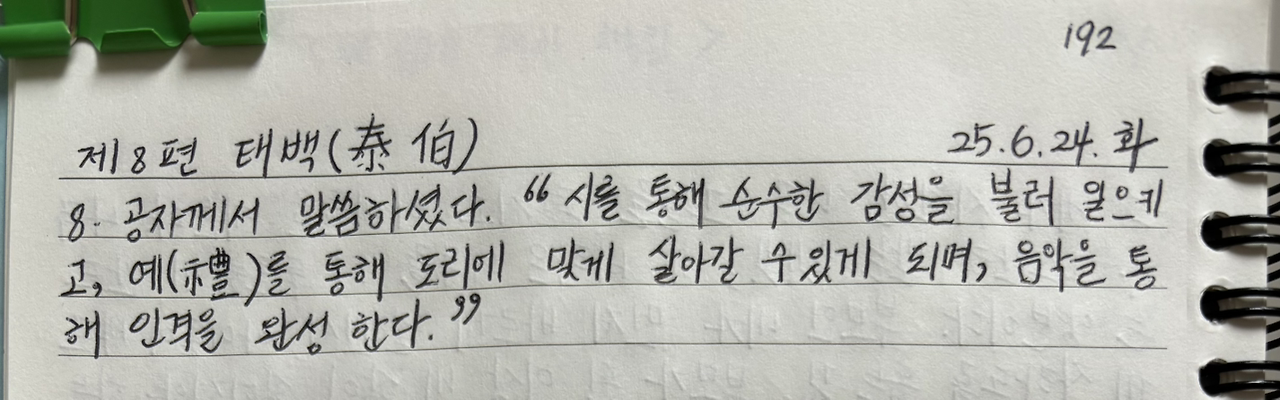 192
제8편 태백(泰伯) 25.6.24. 화
8. 공자께서 말씀하셨다. “시를 통해 순수한 감성을 불러 일으키
고, 예(禮)를 통해 도리에 맞게 살아갈 수 있게 되며, 음악을 통
해 인격을 완성 한다.”